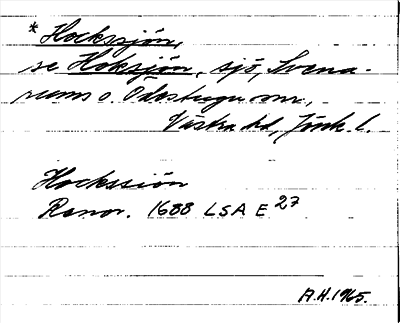 *Hockssjön,
se Hoksjön, sjö, Svena-
rums o. Ödestugu snr,
Västra hd, Jönk. l.
Hockssiön
Renov. 1688 LSA E 27
A.H. 1965.